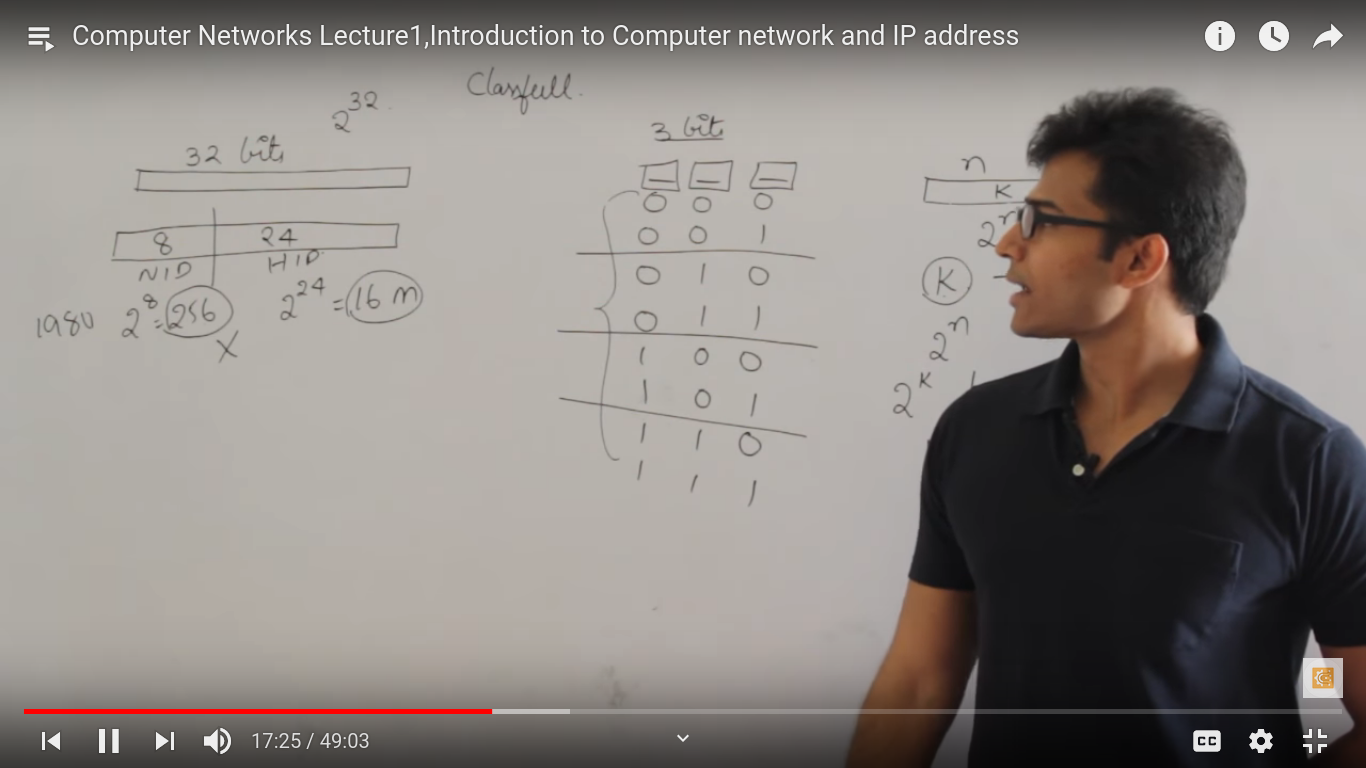 Computer Networks Lecture1,Introduction to Computer network and IP address
2^32.
Classfull.
32 bits
3 bits
n
K
8 24
NID HID
1980 2^8=256 2^24=16 m
X
0 0 0
0 0 1
0 1 0
0 1 1
1 0 0
1 0 1
1 1 0
1 1 1
2^n
K
2^n
2^K
17:25 / 49:03
CC